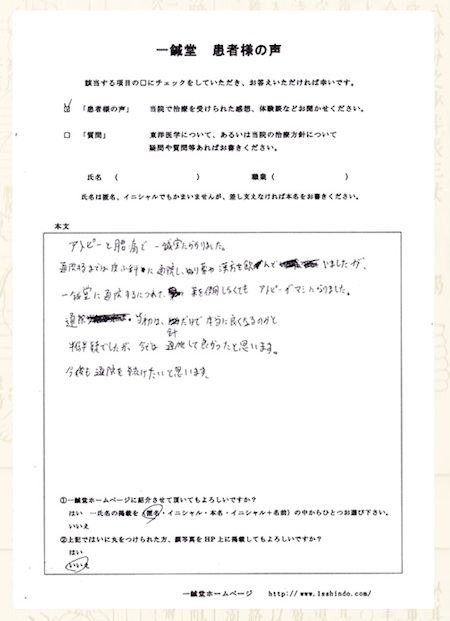 一鍼堂 患者様の声
該当する項目の□にチェックをしていただき、お答えいただければ幸いです。
☑ 「患者様の声」 当院で治療を受けられた感想、体験談などお聞かせください。
□ 「質問」 東洋医学について、あるいは当院の治療方針について
疑問や質問等あればお書きください。
氏名 ( ) 職業 ( )
氏名は匿名、イニシャルでもかまいませんが、差し支えなければ本名をお書きください。
本文
アトピーと腰痛で一鍼堂にかかりました。
通院するまでは皮ふ科に通院し、ぬり薬や漢方を飲んで いましたが、
一鍼堂に通院するにつれて、薬を使用しなくても アトピーがマシになりました。
通院 当初は、針だけで本当に良くなるのかと
半信半疑でしたが、今では 通院して良かったと思います。
今後も通院を続けたいと思います。
①一鍼堂ホームページに紹介させて頂いてもよろしいですか？
はい ―氏名の掲載を（匿名・イニシャル・本名・イニシャル＋名前）の中からひとつお選び下さい。
いいえ
②上記ではいに丸をつけられた方、顔写真をHP上に掲載してもよろしいですか？
はい
いいえ
一鍼堂ホームページ http://www.isshindo.com/